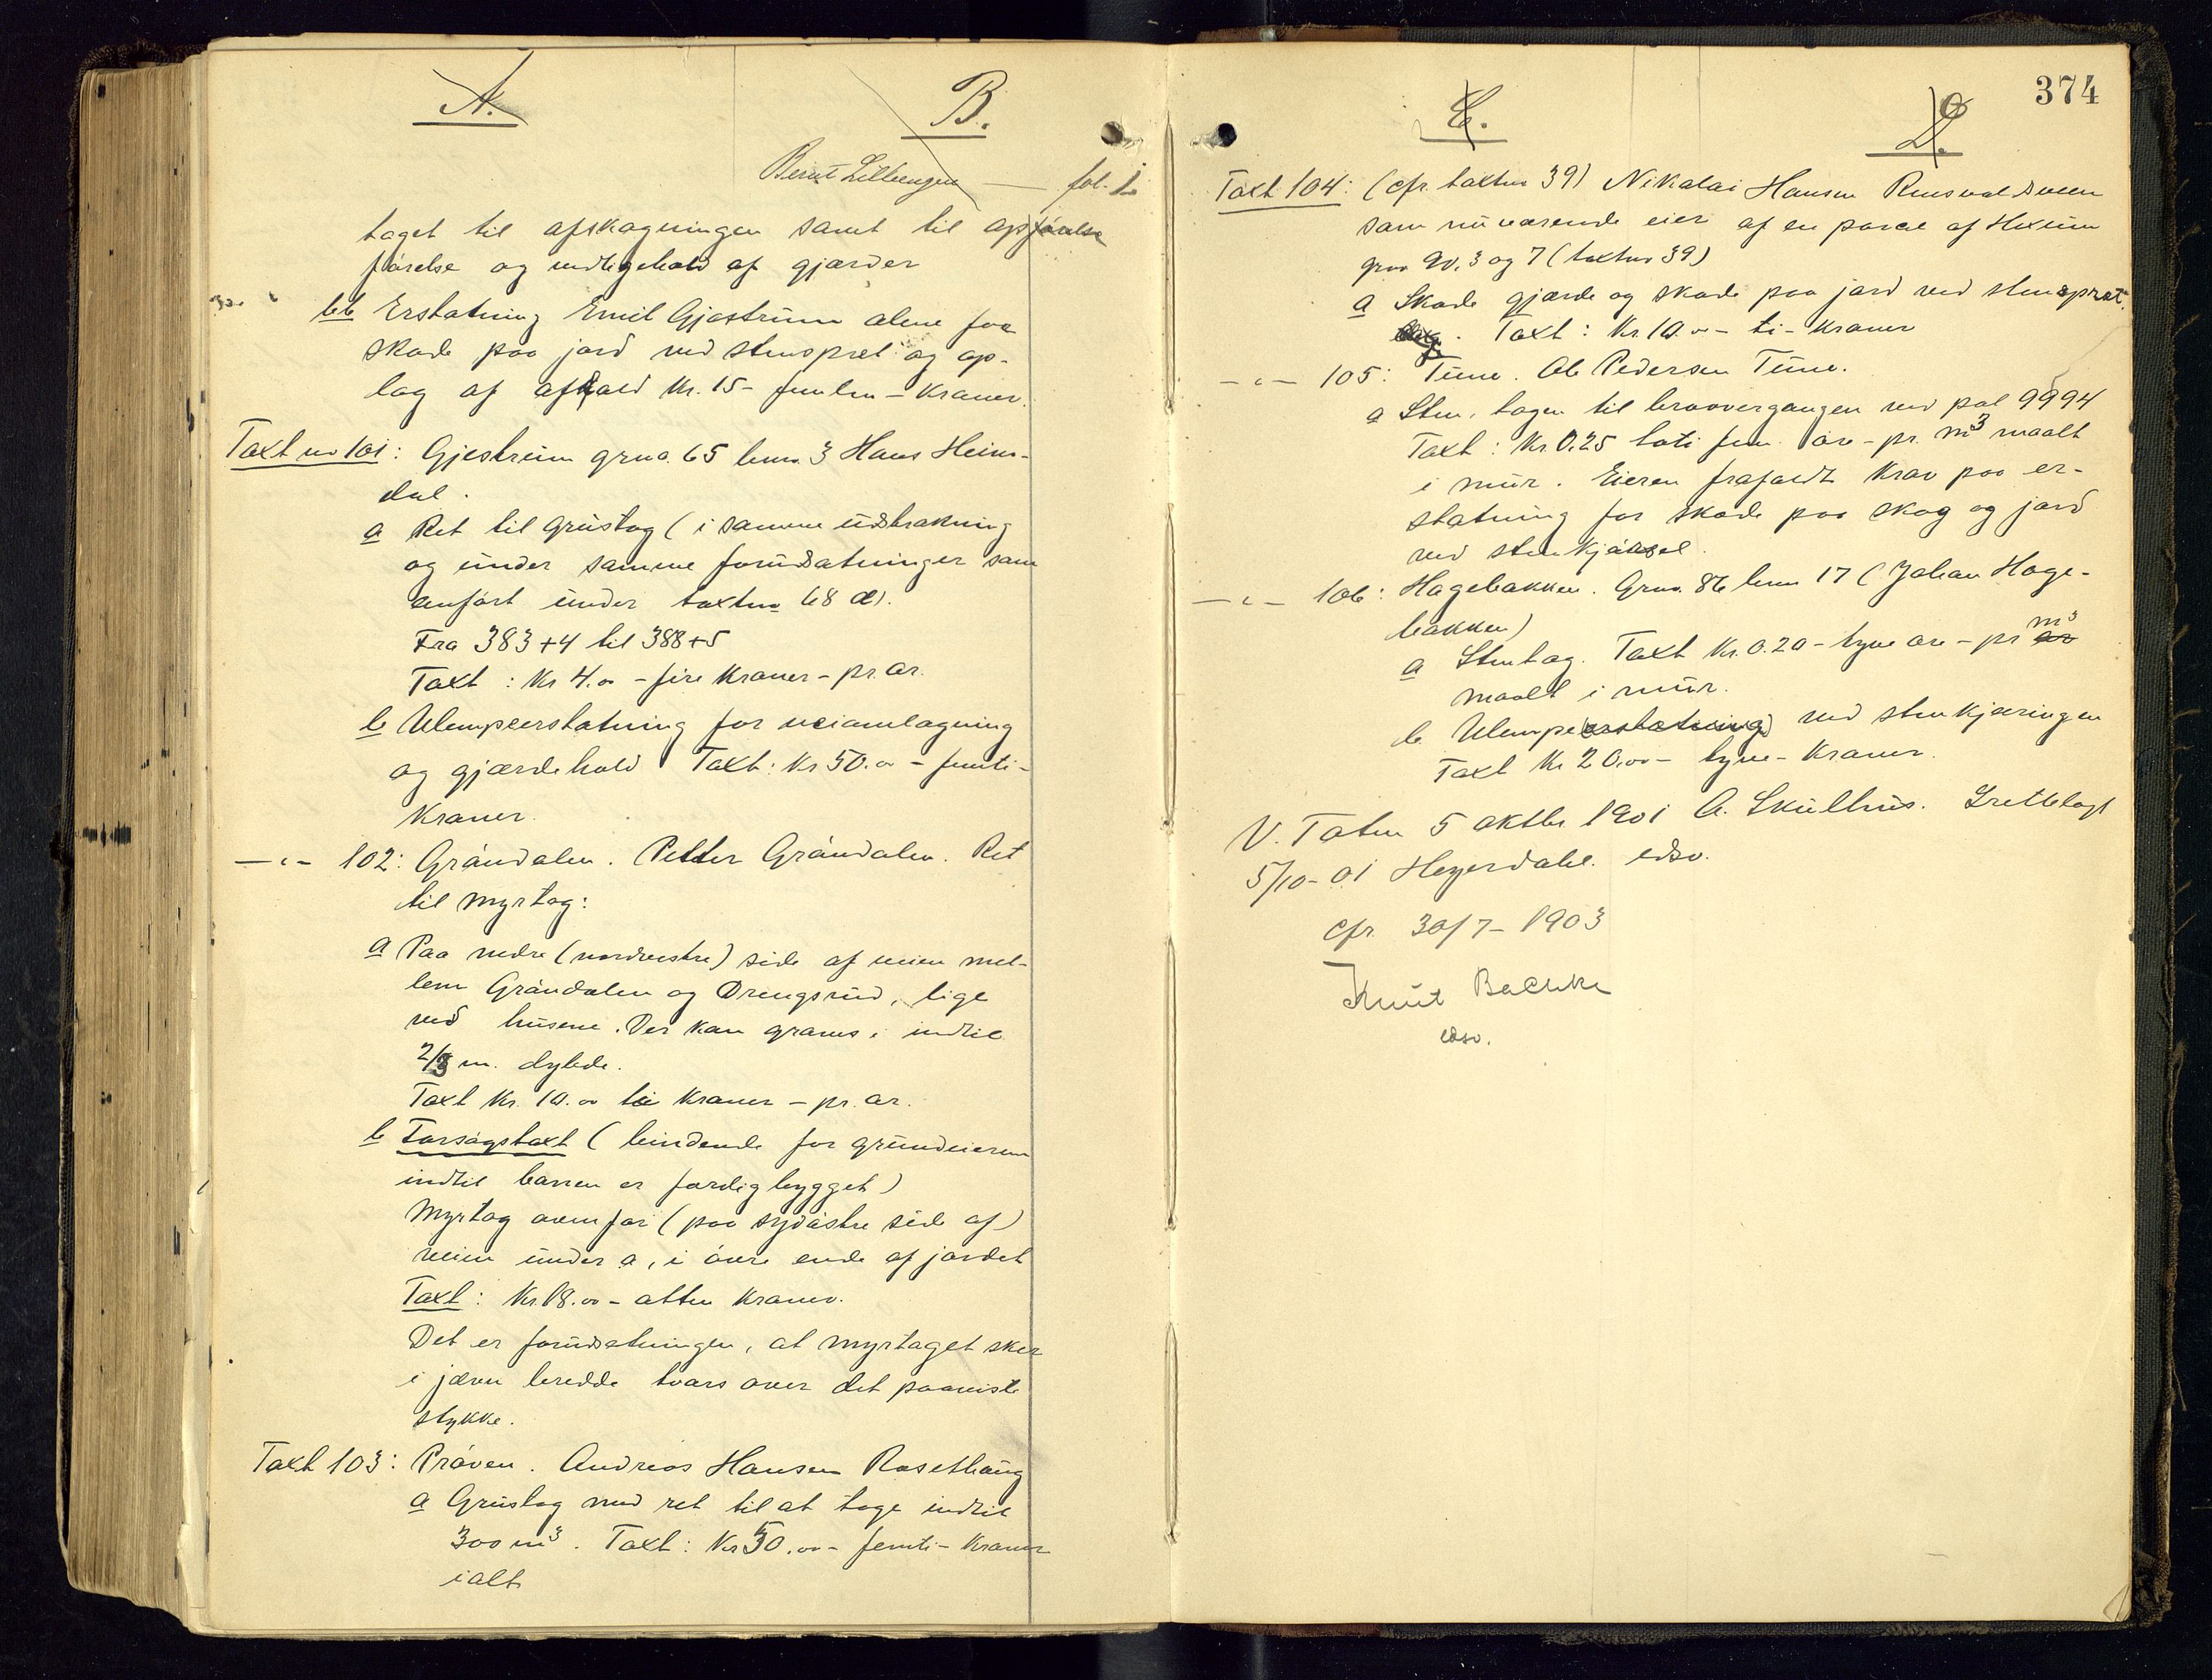 A.
B.
Bernt Lilleengen — fol. 1
taget til afskogningen samt til opførelse
førelse og vedligehold af gjærder
bb Erstatning Emil Gjestrum alene for
skade paa jord ved stensprut og op-
lag af affald Kr. 15 - femten - Kroner.
Taxt no 101: Gjestrum grno. 65 brno. 3 Hans Heim-
dal.
a Ret til grustag (i samme udstrækning
og under samme forudsætninger som
anført under taxtno 68 a).
Fra 383+4 til 388+5
Taxt: Kr 4.00 - fire Kroner - pr. ar.
b Ulempeerstatning for veiomlægning
og gjærdehold Taxt: Kr 50.00 - femti-
Kroner.
— " — 102: Grøndalen. Petter Grøndalen. Ret
til myrtag:
a Paa nedre (nordvestre) side af veien mel-
lem Grøndalen og Drengsrud, lige
ved husene. Der kan graves i indtil
2/3 m. dybde.
Taxt Kr. 10.00 ti Kroner - pr. ar.
b Forsøgstaxt (bindende for grundeieren
indtil banen er færdigbygget)
Myrtag ovenfor (paa sydøstre side af)
veien under a, i øvre ende af jordet
Taxt: Kr. 18.00 - atten Kroner.
Det er forudsætningen, at myrtaget sker
i jævn bredde tvers over det paaviste
stykke.
Taxt 103: Prøven. Andreas Hansen Rosethaug
a Grustag med ret til at tage indtil
300 m³. Taxt: Kr 50.00 - femti - Kroner
ialt
374
C.
D.
Taxt 104: (cfr. taxtno 39) Nikolai Hansen
som nuværende eier af en parcel af Hexum
grno 90, 3 og 7 (taxtno 39)
a Skade gjærde og skade paa jord ved stensprut.
Taxt: Kr. 10.00 - ti - Kroner
— " — 105: Tune. Ole Pedersen Tune.
a Sten, tagen til broovergangen ved pæl 9994
Taxt: Kr. 0.25 toti fem øre - pr. m³ maalt
i mur. Eieren frafaldt krav paa er-
statning for skade paa skog og jord
ved stenkjørsel.
— " — 106: Hagebakken. Grno. 86 brno 17 (Johan Hage-
bakken)
a Stentag. Taxt Kr. 0.20 - tyve øre - pr m³
maalt i mur.
b Ulempe(erstatning) ved stenkjøringen
Taxt Kr 20.00 - tyve - Kroner.
V. Toten 5 oktbr. 1901 A. Skullhus. Irettelagt
5/10-01 Heyerdahl. edsv.
cfr. 30/7 - 1903
Knut Bachke
edsv.